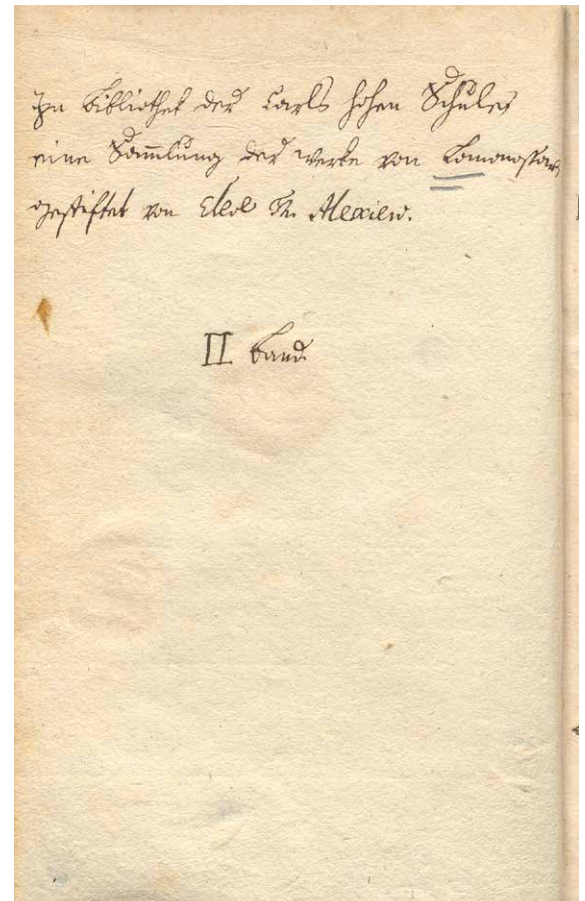 Zu Bibliothek der Carls hohen Schule
eine Sam̅lung der Werke von Lomonossow
gestiftet von Eleve Alexiew.
II. Band